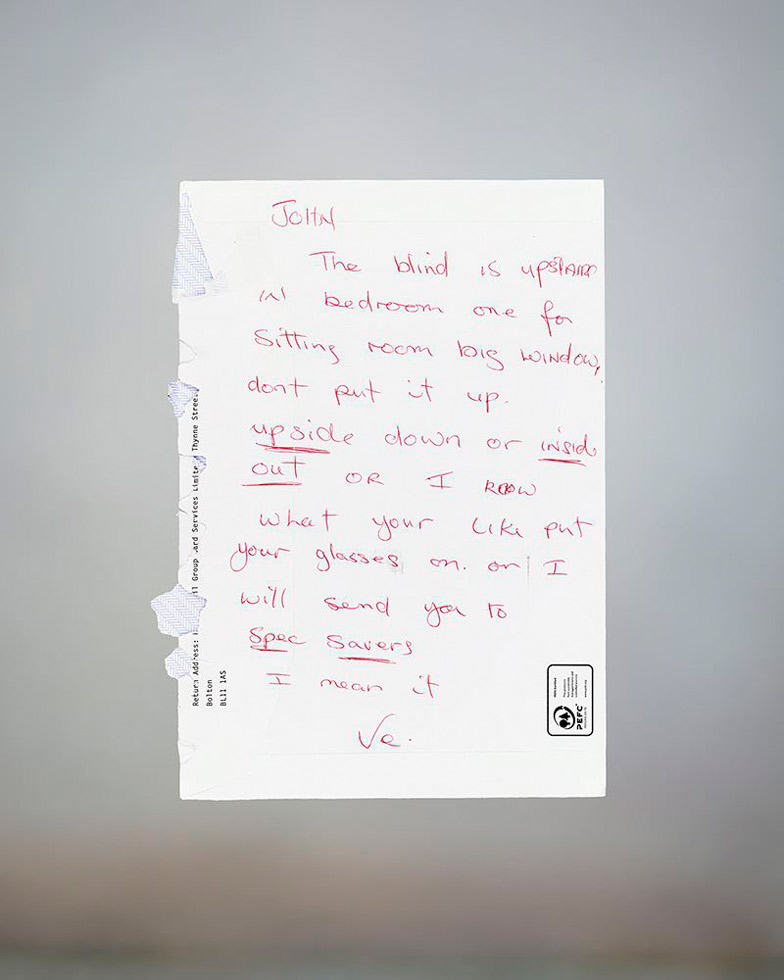 JOHN
The blind is upstairs
in bedroom one for
Sitting room big window,
dont put it up.
upside down or inside
out OR I know
what your like put
your glasses on. or I
will send you to
Spec Savers
I mean it
Ve.
Return Address:
Group
ard Services Limite
Thynne Stree
Bolton
BL11 1AS
PEFC